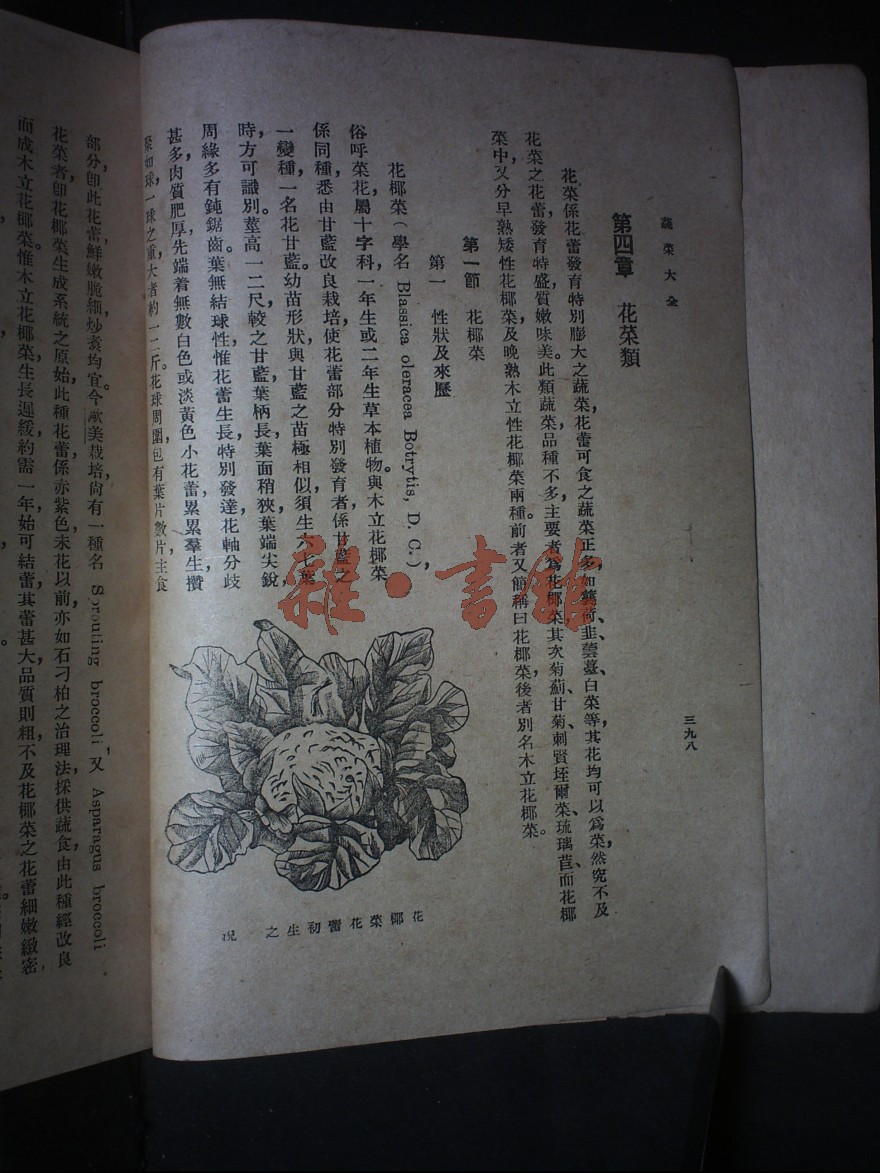 蔬菜大全
三九八
第四章 花菜類
花菜係花蕾發育特別膨大之蔬菜,花蕾可食之蔬菜正多,如蘘荷、韭、蕓薹、白菜等,其花均可以爲菜,然究不及
花菜之花蕾發育特盛,質嫩味美。此類蔬菜品種不多,主要者爲花椰菜,其次菊薊、甘菊、刺賢垤爾菜、琉璃苣,而花椰
菜中又分早熟矮性花椰菜及晚熟木立性花椰菜兩種。前者又簡稱曰花椰菜,後者別名木立花椰菜。
第一節 花椰菜
第一 性狀及來歷
花椰菜(學名 Blassica oleracea Botrytis, D. C.),
俗呼菜花,屬十字科,一年生或二年生草本植物。與木立花椰菜
係同種,悉由甘藍改良栽培,使花蕾部分特別發育者,係甘藍之
一變種,一名花甘藍。幼苗形狀與甘藍之苗極相似,須生六七葉
時,方可識別。莖高一二尺,較之甘藍葉柄長,葉面稍狹,葉端尖銳,
周緣多有鈍鋸齒。葉無結球性,惟花蕾生長,特別發達,花軸分歧
甚多,肉質肥厚,先端着無數白色或淡黃色小花蕾,累累羣生,攢
聚如球,一球之重,大者約一二斤。花球周圍包有葉片數片,主食
花椰菜花蕾初生之 況
部分卽此花蕾,鮮嫩脆細,炒煮均宜。今歐美栽培尙有一種名 Sprouting broccoli, 又 Asparagus broccoli
花菜者,卽花椰菜生成系統之原始,此種花蕾係赤紫色,未花以前,亦如石刁柏之治理法,採供蔬食,由此種經改良
而成木立花椰菜。惟木立花椰菜生長遲緩,約需一年,始可結蕾,其蕾甚大,品質則粗,不及花椰菜之花蕾細嫩緻密
雜·書館